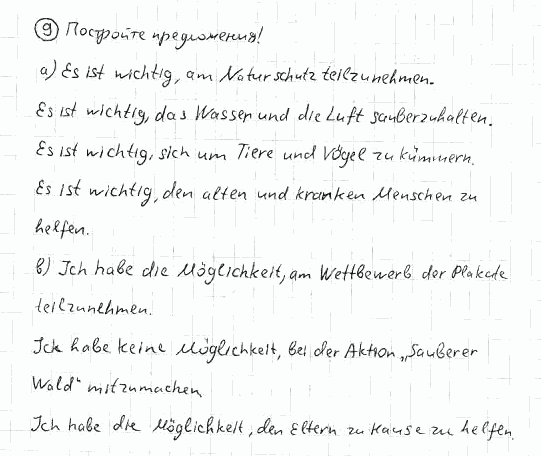 ⑨ Постройте предложения!
а) Es ist wichtig, am Naturschutz teilzunehmen.
Es ist wichtig, das Wasser und die Luft sauberzuhalten.
Es ist wichtig, sich um Tiere und Vögel zu kümmern.
Es ist wichtig, den alten und kranken Menschen zu
helfen.
в) Ich habe die Möglichkeit, am Wettbewerb der Plakate
teilzunehmen.
Ich habe keine Möglichkeit, bei der Aktion „Sauberer
Wald“ mitzumachen.
Ich habe die Möglichkeit, den Eltern zu Hause zu helfen.